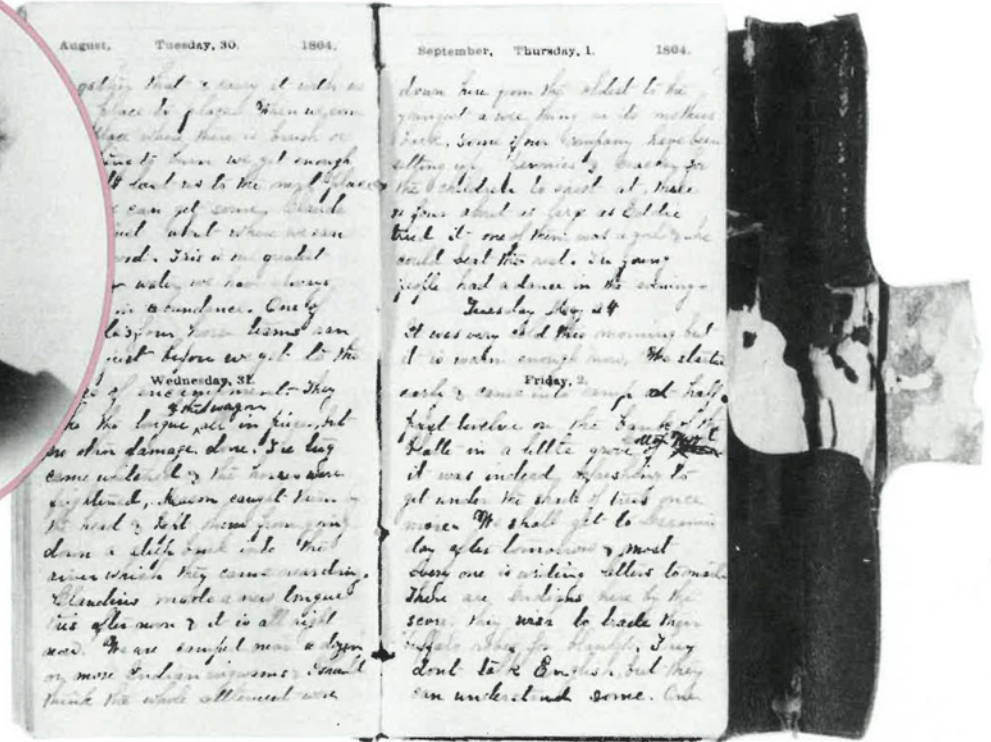 August, Tuesday, 30. 1864.
gather that & carry it with us
place to place. When we come
place where there is brush or
to burn we get enough
last us to the next place
can get some,
about where we can
wood. This is our greatest
water, we have always
in abundance. One of
teams ran
just before we got to the
Wednesday, 31.
of encampment. They
& the wagon
the tongue all in pieces, but
no other damage done. The tug
came unhitched & the horses were
frightened, Mason caught them by
the head & kept them from going
down a steep bank into the
river which they came near doing.
Claudius made a new tongue
this afternoon & it is all right
now. We are camped near a dozen
or more Indian wigwams, I should
think the whole settlement were
September, Thursday, 1. 1864.
down here from the oldest to the
youngest a wee thing on its mothers
back. Some of our Company have been
setting up & crackers for
the children to shoot at, three
or four about as large as Eddie
tried it one of them was a girl & she
could beat the rest. The young
people had a dance in the evening.
Tuesday May 24
It was very cold this morning but
it is warm enough now. We started
Friday, 2.
early & came into camp at half
past twelve on the bank of the
Platte in a little grove of
it was indeed refreshing to
get under the shade of trees once
more. We shall get to
day after tomorrow & most
every one is writing letters to mail
There are Indians here by the
score. they wish to trade their
buffalo robes for blankets. They
dont talk English, but they
can understand some. One